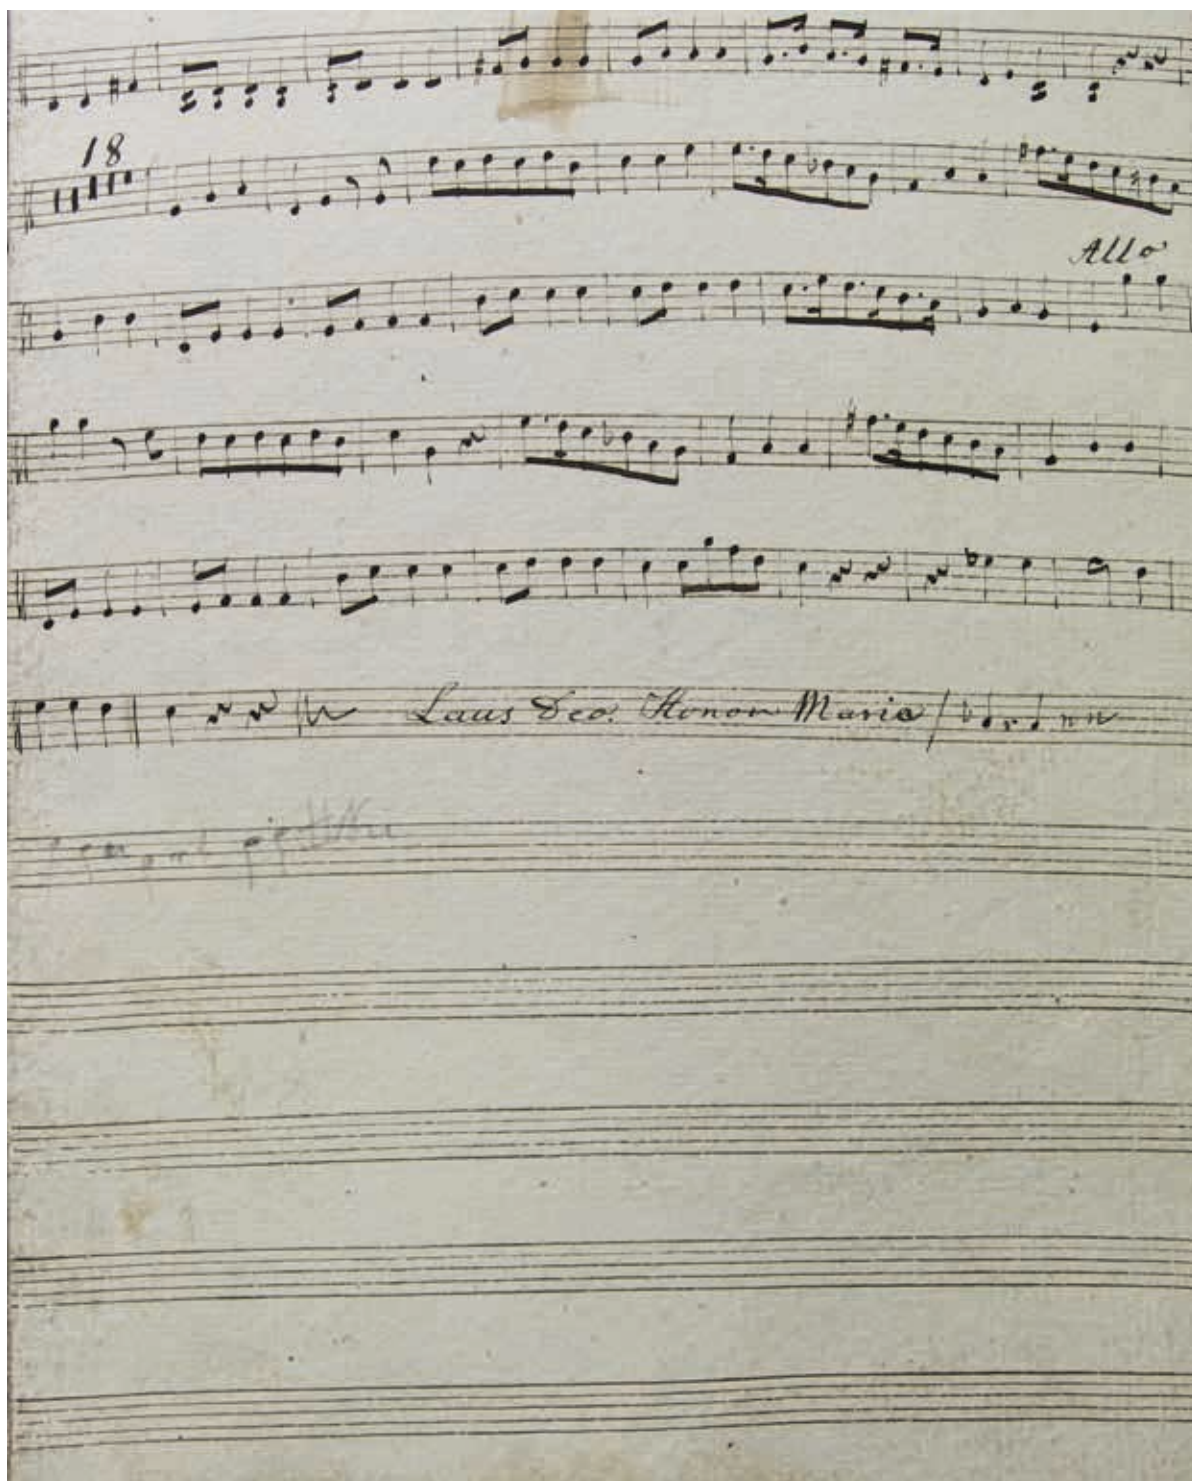 18
Allo
Laus Deo. Honor Maria